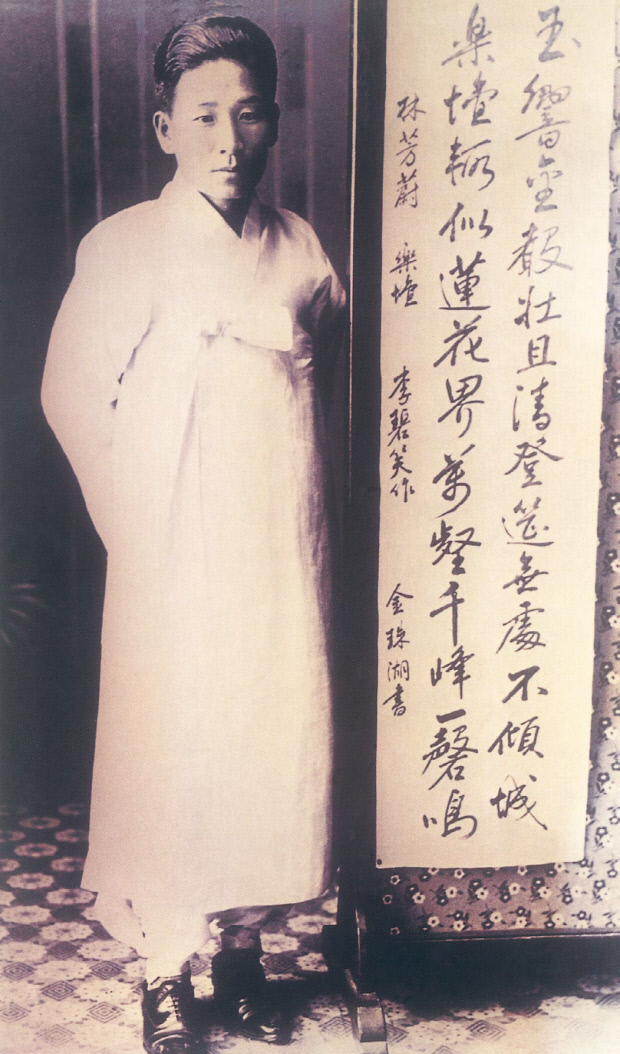 玉響金聲壯且清登筵無處不傾城
楽壇似蓮花界萬壑千峰一磬鳴
林芳蔚 樂壇 李碧笑作 金珠湖書